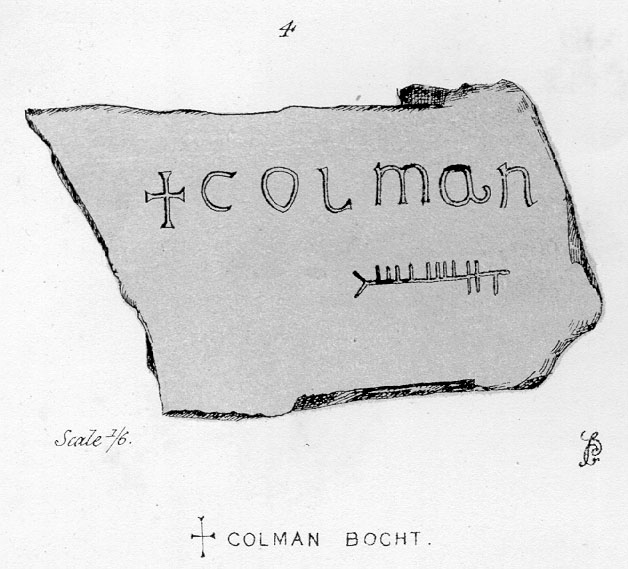 4
+colman
᚛ᚈᚆᚉᚑᚁ
Scale 1/6.
+ COLMAN BOCHT.